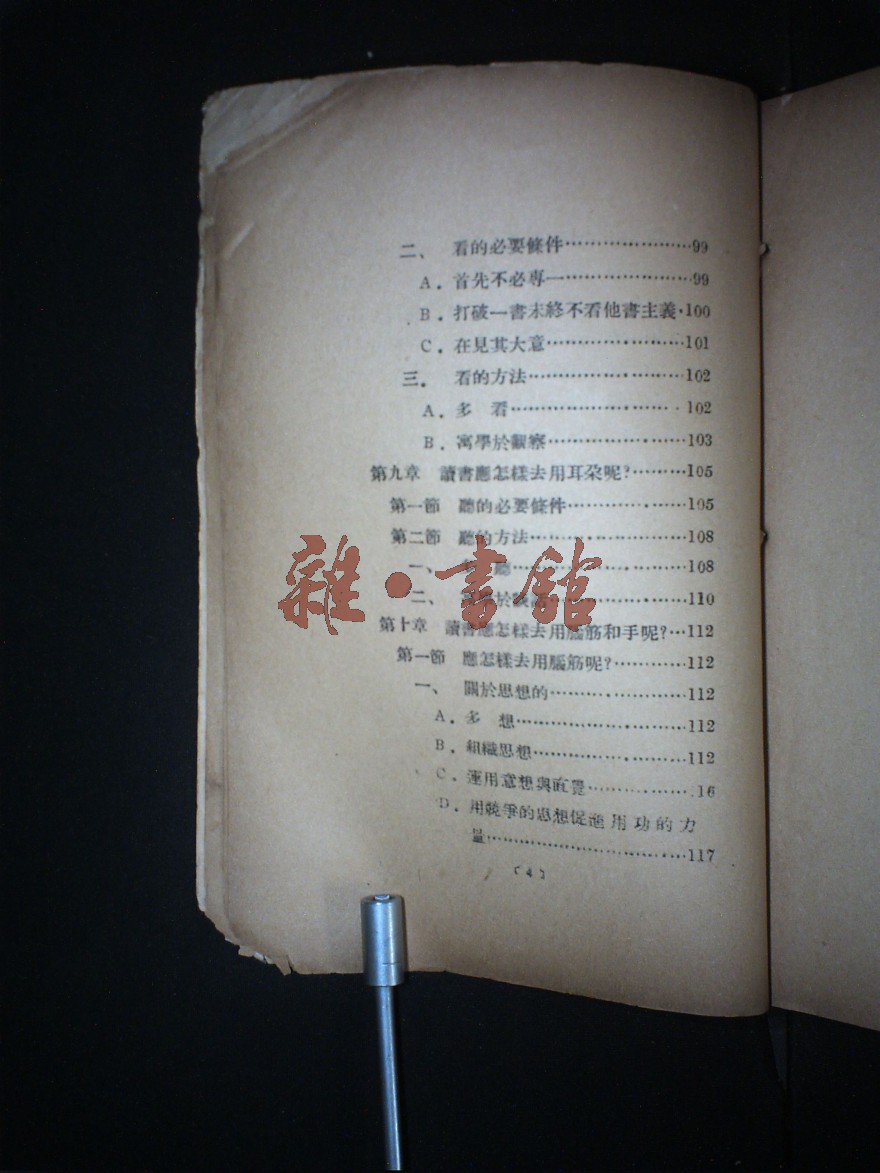 二、 看的必要條件…………………99
A．首先不必專一…………………99
B．打破一書未終不看他書主義·100
C．在見其大意…………………101
三． 看的方法…………………102
A．多 看…………………102
B．寓學於觀察…………………103
第九章 讀書應怎樣去用耳朶呢?………105
第一節 聽的必要條件…………………105
第二節 聽的方法…………………108
一、 聽…………………108
二、 於…………………110
第十章 讀書應怎樣去用腦筋和手呢?…112
第一節 應怎樣去用腦筋呢?…………112
一、 關於思想的…………………112
A．多 想…………………112
B．組織思想…………………112
C．運用意想與直覺………………16
D．用競爭的思想促進用功的力
量…………………………117
(4)
雜·書舘